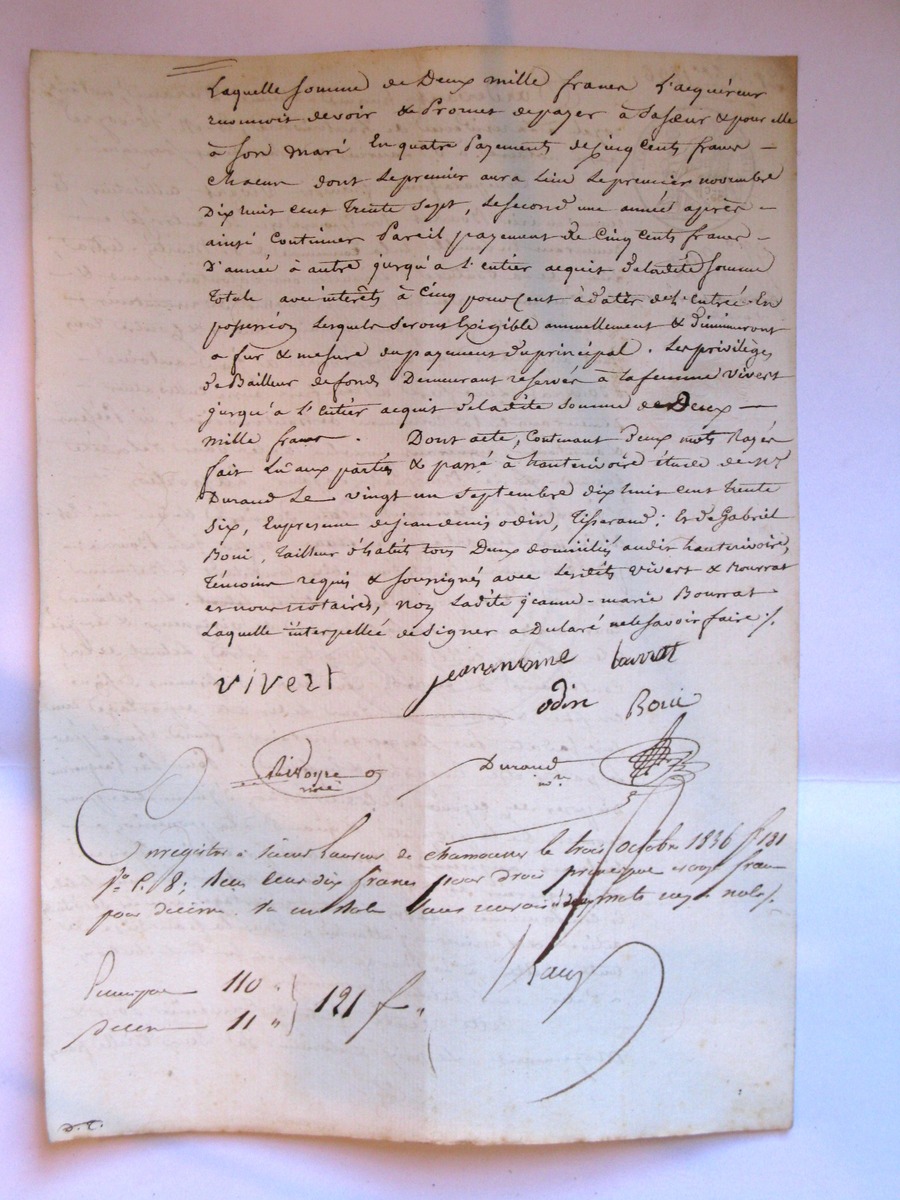 Laquelle somme de Deux mille francs l'acquéreur
reconnoit devoir & Promet de payer à Sa sœur & pour elle
à Son mari En quatre Payements de Cinq Cents francs —
chacun dont Le premier aura Lieu Le premier novembre
Dix huit cent Trente Sept, Le second une année après —
ainsi Continuer Pareil payement de Cinq Cents francs —
D'année à autre jusqu'à l'entier acquit de ladite Somme
Totale avec interêts à Cinq pour Cent à dater de l'Entrée En
possession Lesquels Seront Exigible annuellement & diminueront
a fur & mesure du payement du principal. Les privilèges
de Bailleur de fonds Demeurant reservés à La femme Vivert
jusqu'à l'Entier acquit de ladite Somme de Deux —
mille francs. Dont acte, Contenant deux mots Rayés
fait Lu aux parties & passé à hauterivoire étude de Me
Durand Le vingt un Septembre dix huit cent trente
Six, En presence de jean denis odin, Tisserand; Et de Gabriel
Boui, Tailleur d'habits tous Deux domiciliés audit hauterivoire,
Témoins requis & soussignés avec Lesdits Vivert & Bourrat
et nous notaires, non Ladite jeanne-marie Bourrat
Laquelle interpellée de Signer a Déclaré ne le Savoir faire ./.
vivert jeanmarie bourrat
odin Boui
Durand
Enregistré à Saint Laurent de chamousset le trois octobre 1836 f° 131
C. 8; Reçu Cent dix francs pour droit principal et onze francs
pour décime.
Principal 110 "
décime 11 " } 121 f "
D.T.